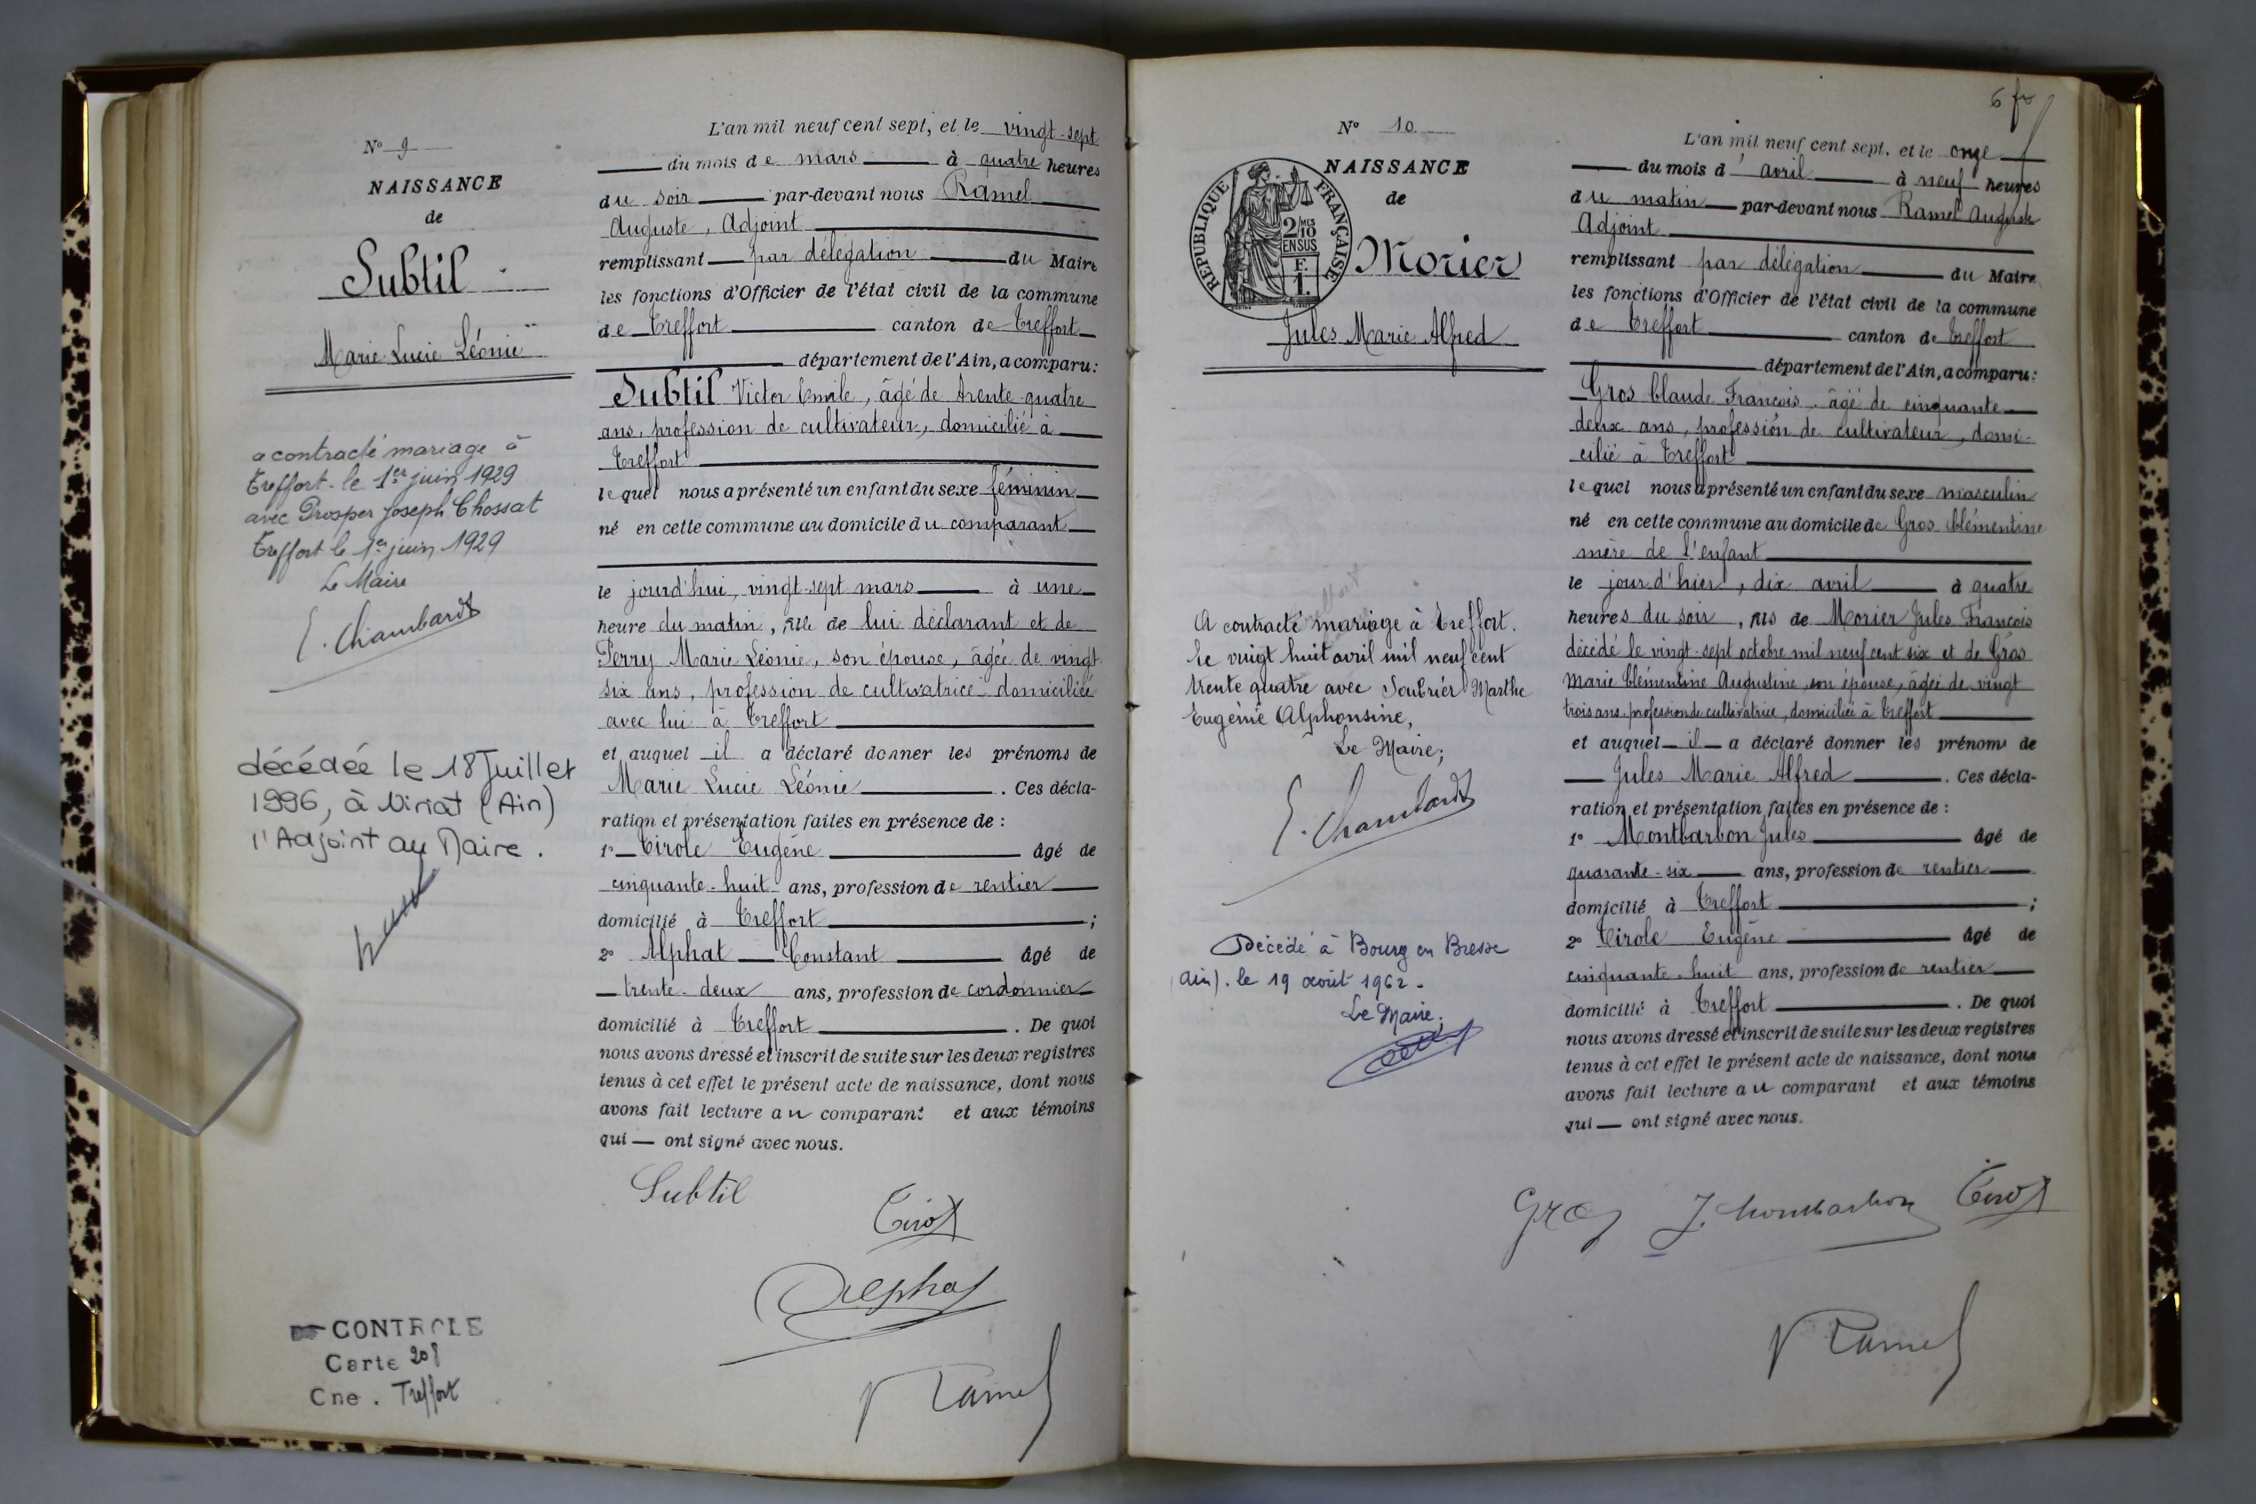 N° 9
NAISSANCE
de
Subtil
Marie Lucie Léonie
a contracté mariage à
Treffort le 1er juin 1929
avec Prosper Joseph Chossat
Treffort le 1er juin 1929
Le Maire
E. Chambard
décédée le 18 Juillet
1996, à Viriat (Ain)
l'Adjoint au Maire.
CONTROLE
Carte 208
Cne. Treffort
L'an mil neuf cent sept, et le vingt-sept
du mois de mars à quatre heures
du soir par-devant nous Ramel
Auguste, Adjoint
remplissant par délégation du Maire
les fonctions d'Officier de l'état civil de la commune
de Treffort canton de Treffort
département de l'Ain, a comparu:
Subtil Victor Emile, âgé de trente-quatre
ans, profession de cultivateur, domicilié à
Treffort
lequel nous a présenté un enfant du sexe féminin
né en cette commune au domicile du comparant
le jourd'hui, vingt-sept mars à une
heure du matin, fille de lui déclarant et de
Perry Marie Léonie, son épouse, âgée de vingt
six ans, profession de cultivatrice domiciliée
avec lui à Treffort
et auquel il a déclaré donner les prénoms de
Marie Lucie Léonie . Ces décla-
ration et présentation faites en présence de :
1° Tirole Eugène âgé de
cinquante-huit ans, profession de rentier
domicilié à Treffort ;
2° Alphat Constant âgé de
trente-deux ans, profession de cordonnier
domicilié à Treffort . De quoi
nous avons dressé et inscrit de suite sur les deux registres
tenus à cet effet le présent acte de naissance, dont nous
avons fait lecture au comparant et aux témoins
qui ont signé avec nous.
Subtil
Tirol
Alphat
Ramel
6
N° 10
NAISSANCE
de
RÉPUBLIQUE FRANÇAISE
2/10 MES
EN SUS
F.
1.
Morier
Jules Marie Alfred
A contracté mariage à Treffort.
le vingt huit avril mil neuf cent
trente quatre avec Soubrier Marthe
Eugénie Alphonsine,
Le Maire;
E. Chambard
Décédé à Bourg en Bresse
(Ain). le 19 août 1962.
Le Maire,
L'an mil neuf cent sept. et le onze
du mois d'avril à neuf heures
du matin par-devant nous Ramel Auguste
Adjoint
remplissant par délégation du Maire
les fonctions d'Officier de l'état civil de la commune
de Treffort canton de Treffort
département de l'Ain, a comparu:
Gros Claude François âgé de cinquante
deux ans, profession de cultivateur, domi-
cilié à Treffort
lequel nous a présenté un enfant du sexe masculin
né en cette commune au domicile de Gros Clémentine
mère de l'enfant
le jour d'hier, dix avril à quatre
heures du soir, fils de Morier Jules François
décédé le vingt-sept octobre mil neuf cent six et de Gros
Marie Clémentine Augustine, son épouse, âgée de vingt
trois ans, profession de cultivatrice, domiciliée à Treffort
et auquel il a déclaré donner les prénoms de
Jules Marie Alfred . Ces décla-
ration et présentation faites en présence de :
1° Montbarbon Jules âgé de
quarante-six ans, profession de rentier
domicilié à Treffort ;
2° Tirole Eugène âgé de
cinquante-huit ans, profession de rentier
domicilié à Treffort . De quoi
nous avons dressé et inscrit de suite sur les deux registres
tenus à cet effet le présent acte de naissance, dont nous
avons fait lecture au comparant et aux témoins
qui ont signé avec nous.
Gros J. Montbarbon Tirol
Ramel